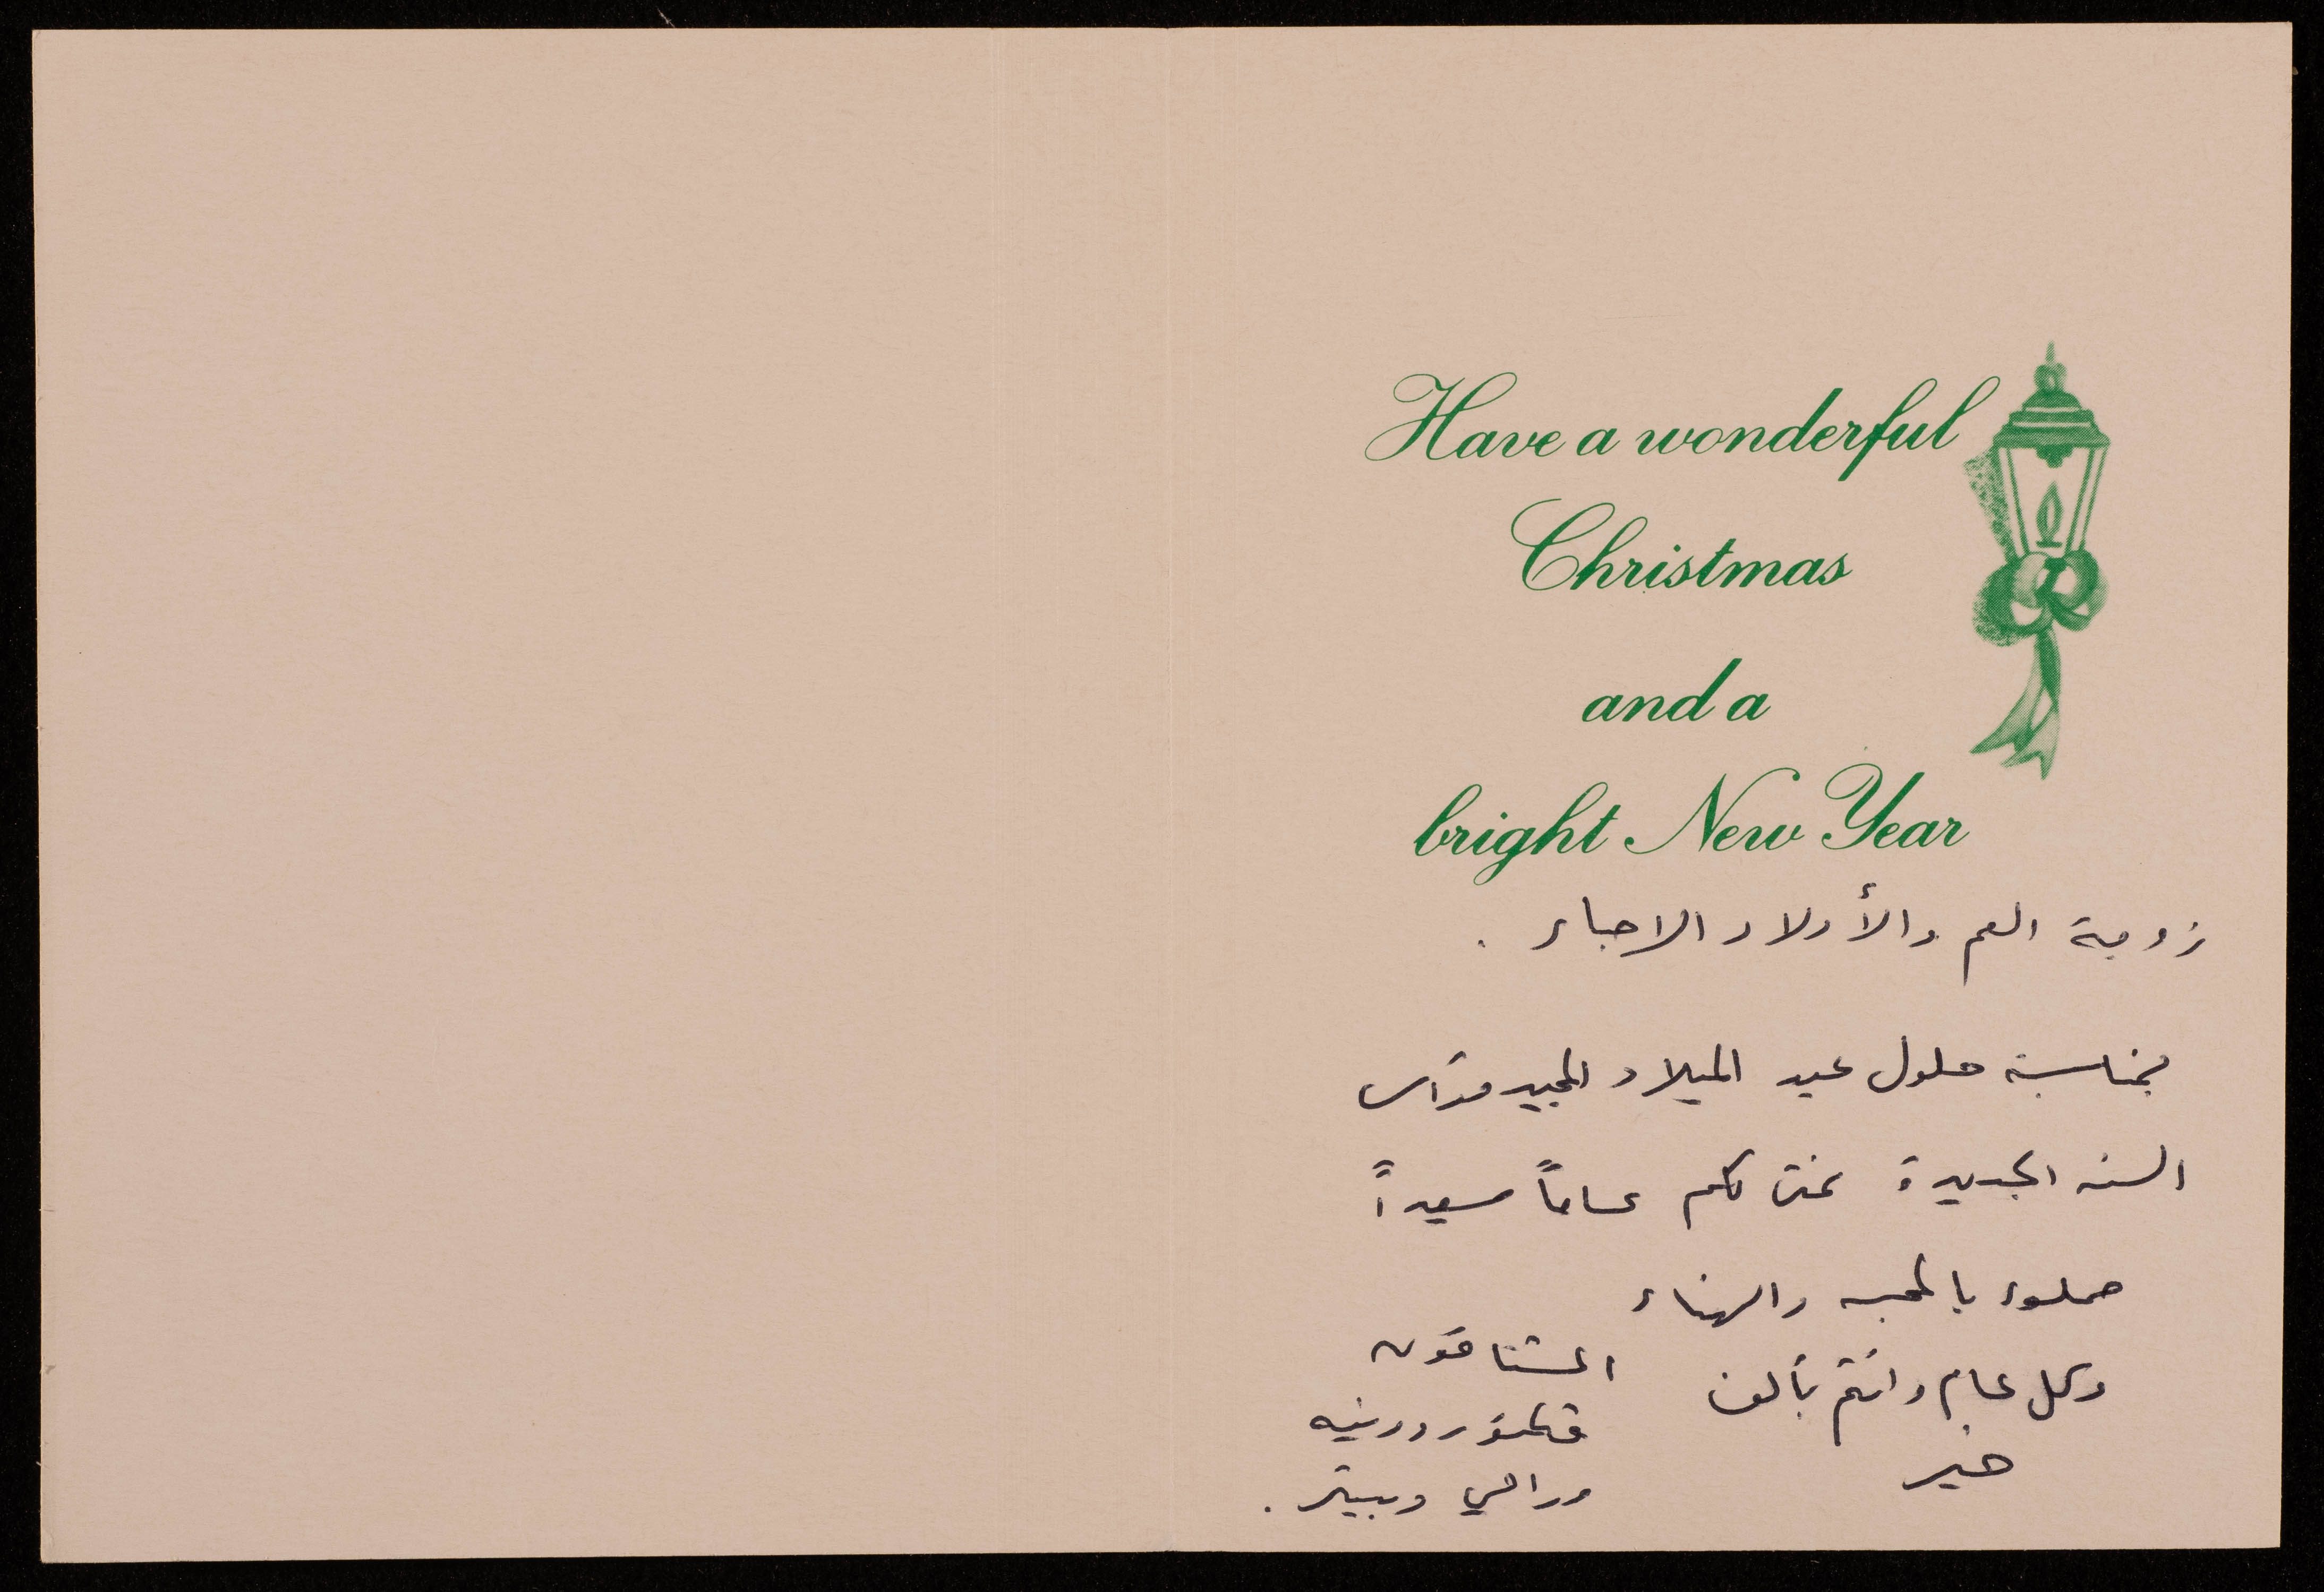 Have a wonderful
Christmas
and a
bright New Year
زوجة العم والأولاد الاحباء .
بمناسبة حلول عيد الميلاد المجيد ورأس
السنه الجديدة نتمنى لكم عاماً سعيداً
مملوء بالمحبه والهناء
وكل عام وانتم بألف
خير
المشتاقون
فكتور ورينيه
ورامي وبيتر .